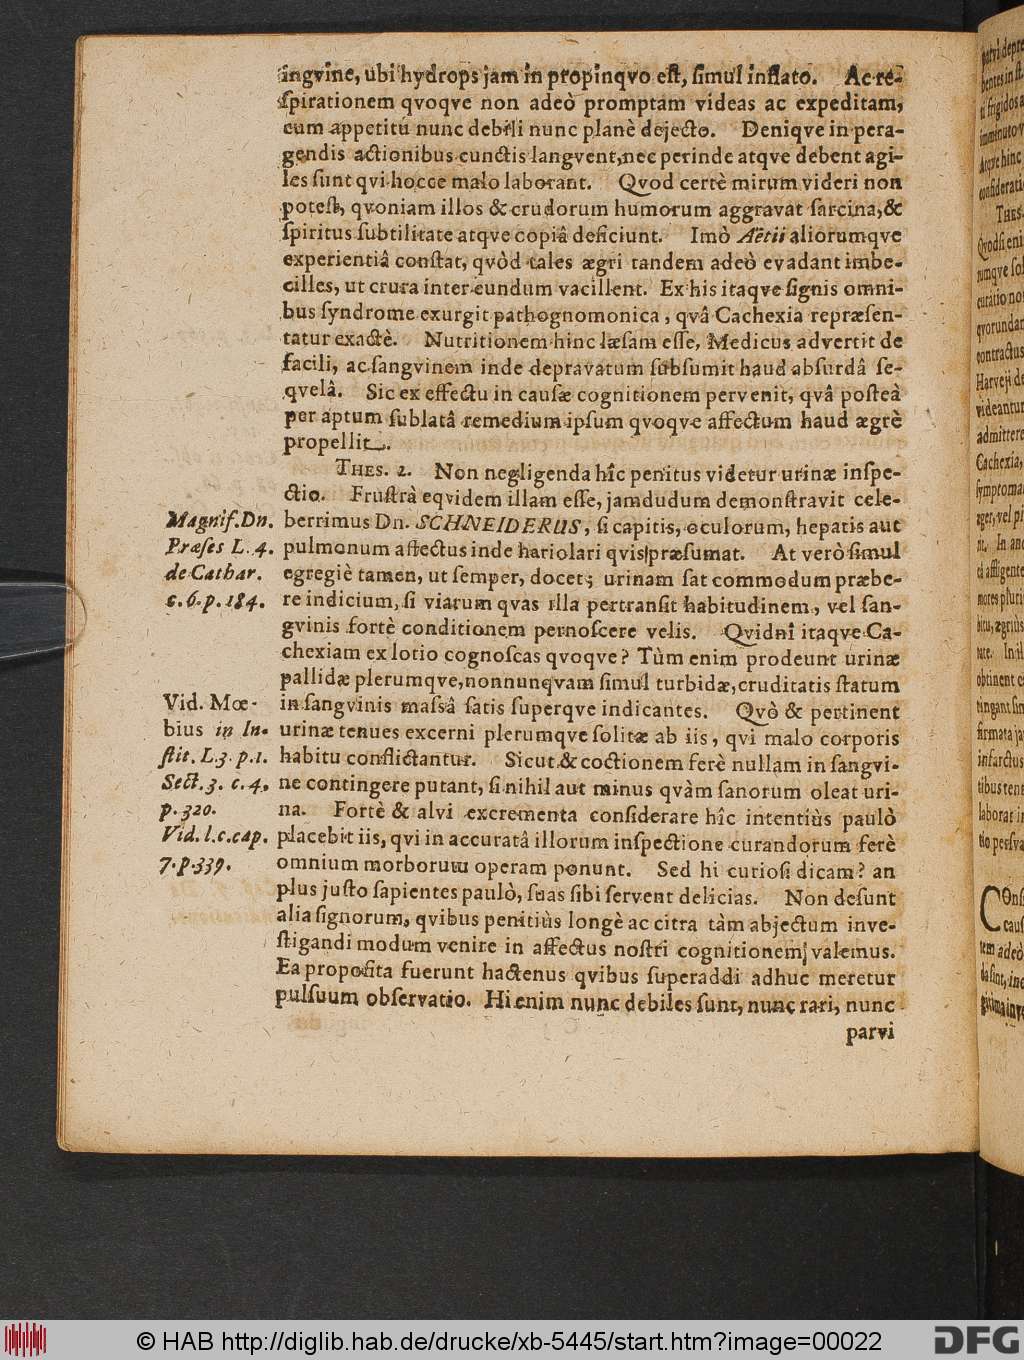 ingvine, ubi hydrops jam in propinqvo est, simul inflato. Ac re-
spirationem qvoqve non adeò promptam videas ac expeditam,
cum appetitu nunc debili nunc planè dejecto. Deniqve in pera-
gendis actionibus cunctis langvent, nec perinde atqve debent agi-
les sunt qvi hocce malo laborant. Qvod certè mirum videri non
potest, qvoniam illos & crudorum humorum aggravat sarcina, &
spiritus subtilitate atqve copiâ deficiunt. Imò Aëtii aliorumqve
experientiâ constat, qvòd tales ægri tandem adeò evadant imbe-
cilles, ut crura inter eundum vacillent. Ex his itaqve signis omni-
bus syndrome exurgit pathognomonica, qvâ Cachexia repræsen-
tatur exactè. Nutritionem hinc læsam esse, Medicus advertit de
facili, ac sangvinem inde depravatum subsumit haud absurdâ se-
qvelâ. Sic ex effectu in causæ cognitionem pervenit, qvâ posteà
per aptum sublatâ remedium ipsum qvoqve affectum haud ægrè
propellit.
THES. 2. Non negligenda hîc penitus videtur urinæ inspe-
ctio. Frustrà eqvidem illam esse, jamdudum demonstravit cele-
berrimus Dn. SCHNEIDERUS, si capitis, oculorum, hepatis aut
pulmonum affectus inde hariolari qvis præsumat. At verò simul
egregiè tamen, ut semper, docet; urinam sat commodum præbe-
re indicium, si viarum qvas illa pertransit habitudinem, vel san-
gvinis fortè conditionem pernoscere velis. Qvidni itaqve Ca-
chexiam ex lotio cognoscas qvoqve? Tùm enim prodeunt urinæ
pallidæ plerumqve, nonnunqvam simul turbidæ, cruditatis statum
in sangvinis massâ satis superqve indicantes. Qvò & pertinent
urinæ tenues excerni plerumqve solitæ ab iis, qvi malo corporis
habitu conflictantur. Sicut & coctionem ferè nullam in sangvi-
ne contingere putant, si nihil aut minus qvàm sanorum oleat uri-
na. Fortè & alvi excrementa considerare hîc intentiùs paulò
placebit iis, qvi in accuratâ illorum inspectione curandorum ferè
omnium morborum operam ponunt. Sed hi curiosi dicam? an
plus justo sapientes paulò, suas sibi servent delicias. Non desunt
alia signorum, qvibus penitiùs longè ac citra tàm abjectum inve-
stigandi modum venire in affectus nostri cognitionem valemus.
Ea proposita fuerunt hactenus qvibus superaddi adhuc meretur
pulsuum observatio. Hi enim nunc debiles sunt, nunc rari, nunc
parvi
Magnif. Dn.
Præses L. 4.
de Cathar.
c. 6. p. 184.
Vid. Mœ-
bius in In-
stit. L. 3. p. 1.
Sect. 3. c. 4.
p. 320.
Vid. l. c. cap.
7. p. 339.
© HAB http://diglib.hab.de/drucke/xb-5445/start.htm?image=00022
DFG